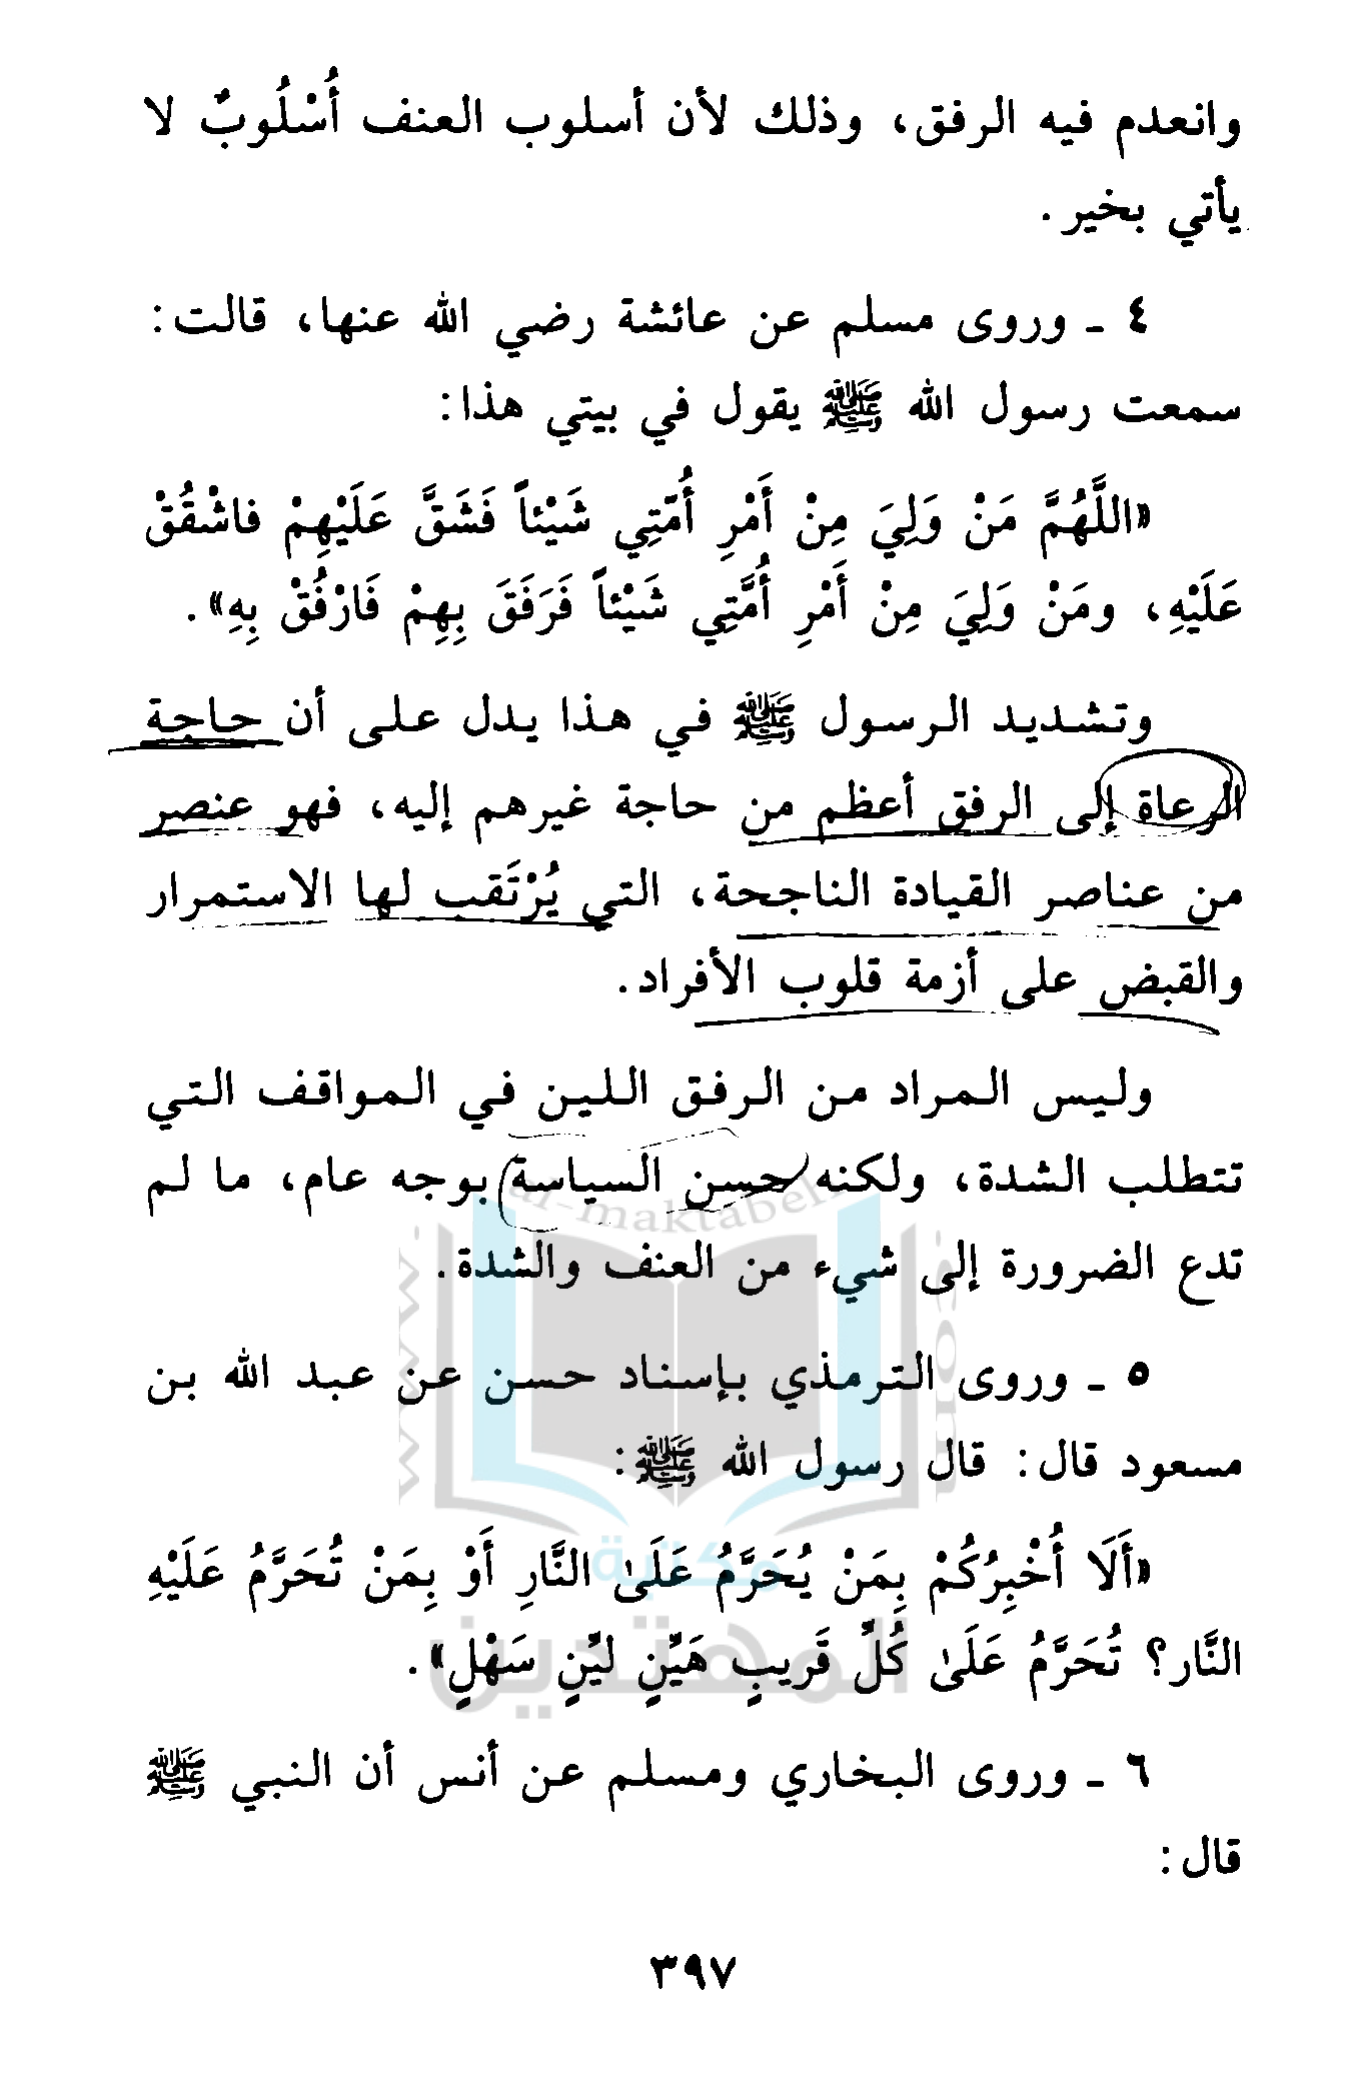 وانعدم فيه الرفق، وذلك لأن أسلوب العنف أُسْلُوبٌ لا
يأتي بخير.
٤ ـ وروى مسلم عن عائشة رضي الله عنها، قالت:
سمعت رسول الله ﷺ يقول في بيتي هذا:
«اللَّهُمَّ مَنْ وَلِيَ مِنْ أَمْرِ أُمَّتِي شَيْئاً فَشَقَّ عَلَيْهِمْ فاشْقُقْ
عَلَيْهِ، ومَنْ وَلِيَ مِنْ أَمْرِ أُمَّتِي شَيْئاً فَرَفَقَ بِهِمْ فَارْفُقْ بِهِ».
وتشديد الرسول ﷺ في هذا يدل على أن حاجة
الرعاة إلى الرفق أعظم من حاجة غيرهم إليه، فهو عنصر
من عناصر القيادة الناجحة، التي يُرْتَقب لها الاستمرار
والقبض على أزمة قلوب الأفراد.
وليس المراد من الرفق اللين في المواقف التي
تتطلب الشدة، ولكنه حسن السياسة بوجه عام، ما لم
تدع الضرورة إلى شيء من العنف والشدة.
٥ ـ وروى الترمذي بإسناد حسن عن عبد الله بن
مسعود قال: قال رسول الله ﷺ:
«أَلَا أُخْبِرُكُمْ بِمَنْ يُحَرَّمُ عَلَىٰ النَّارِ أَوْ بِمَنْ تُحَرَّمُ عَلَيْهِ
النَّار؟ تُحَرَّمُ عَلَىٰ كُلِّ قَريبٍ هَيِّنٍ ليِّنٍ سَهْلٍ».
٦ ـ وروى البخاري ومسلم عن أنس أن النبي ﷺ
قال:
٣٩٧
مكتبة
المهتدين